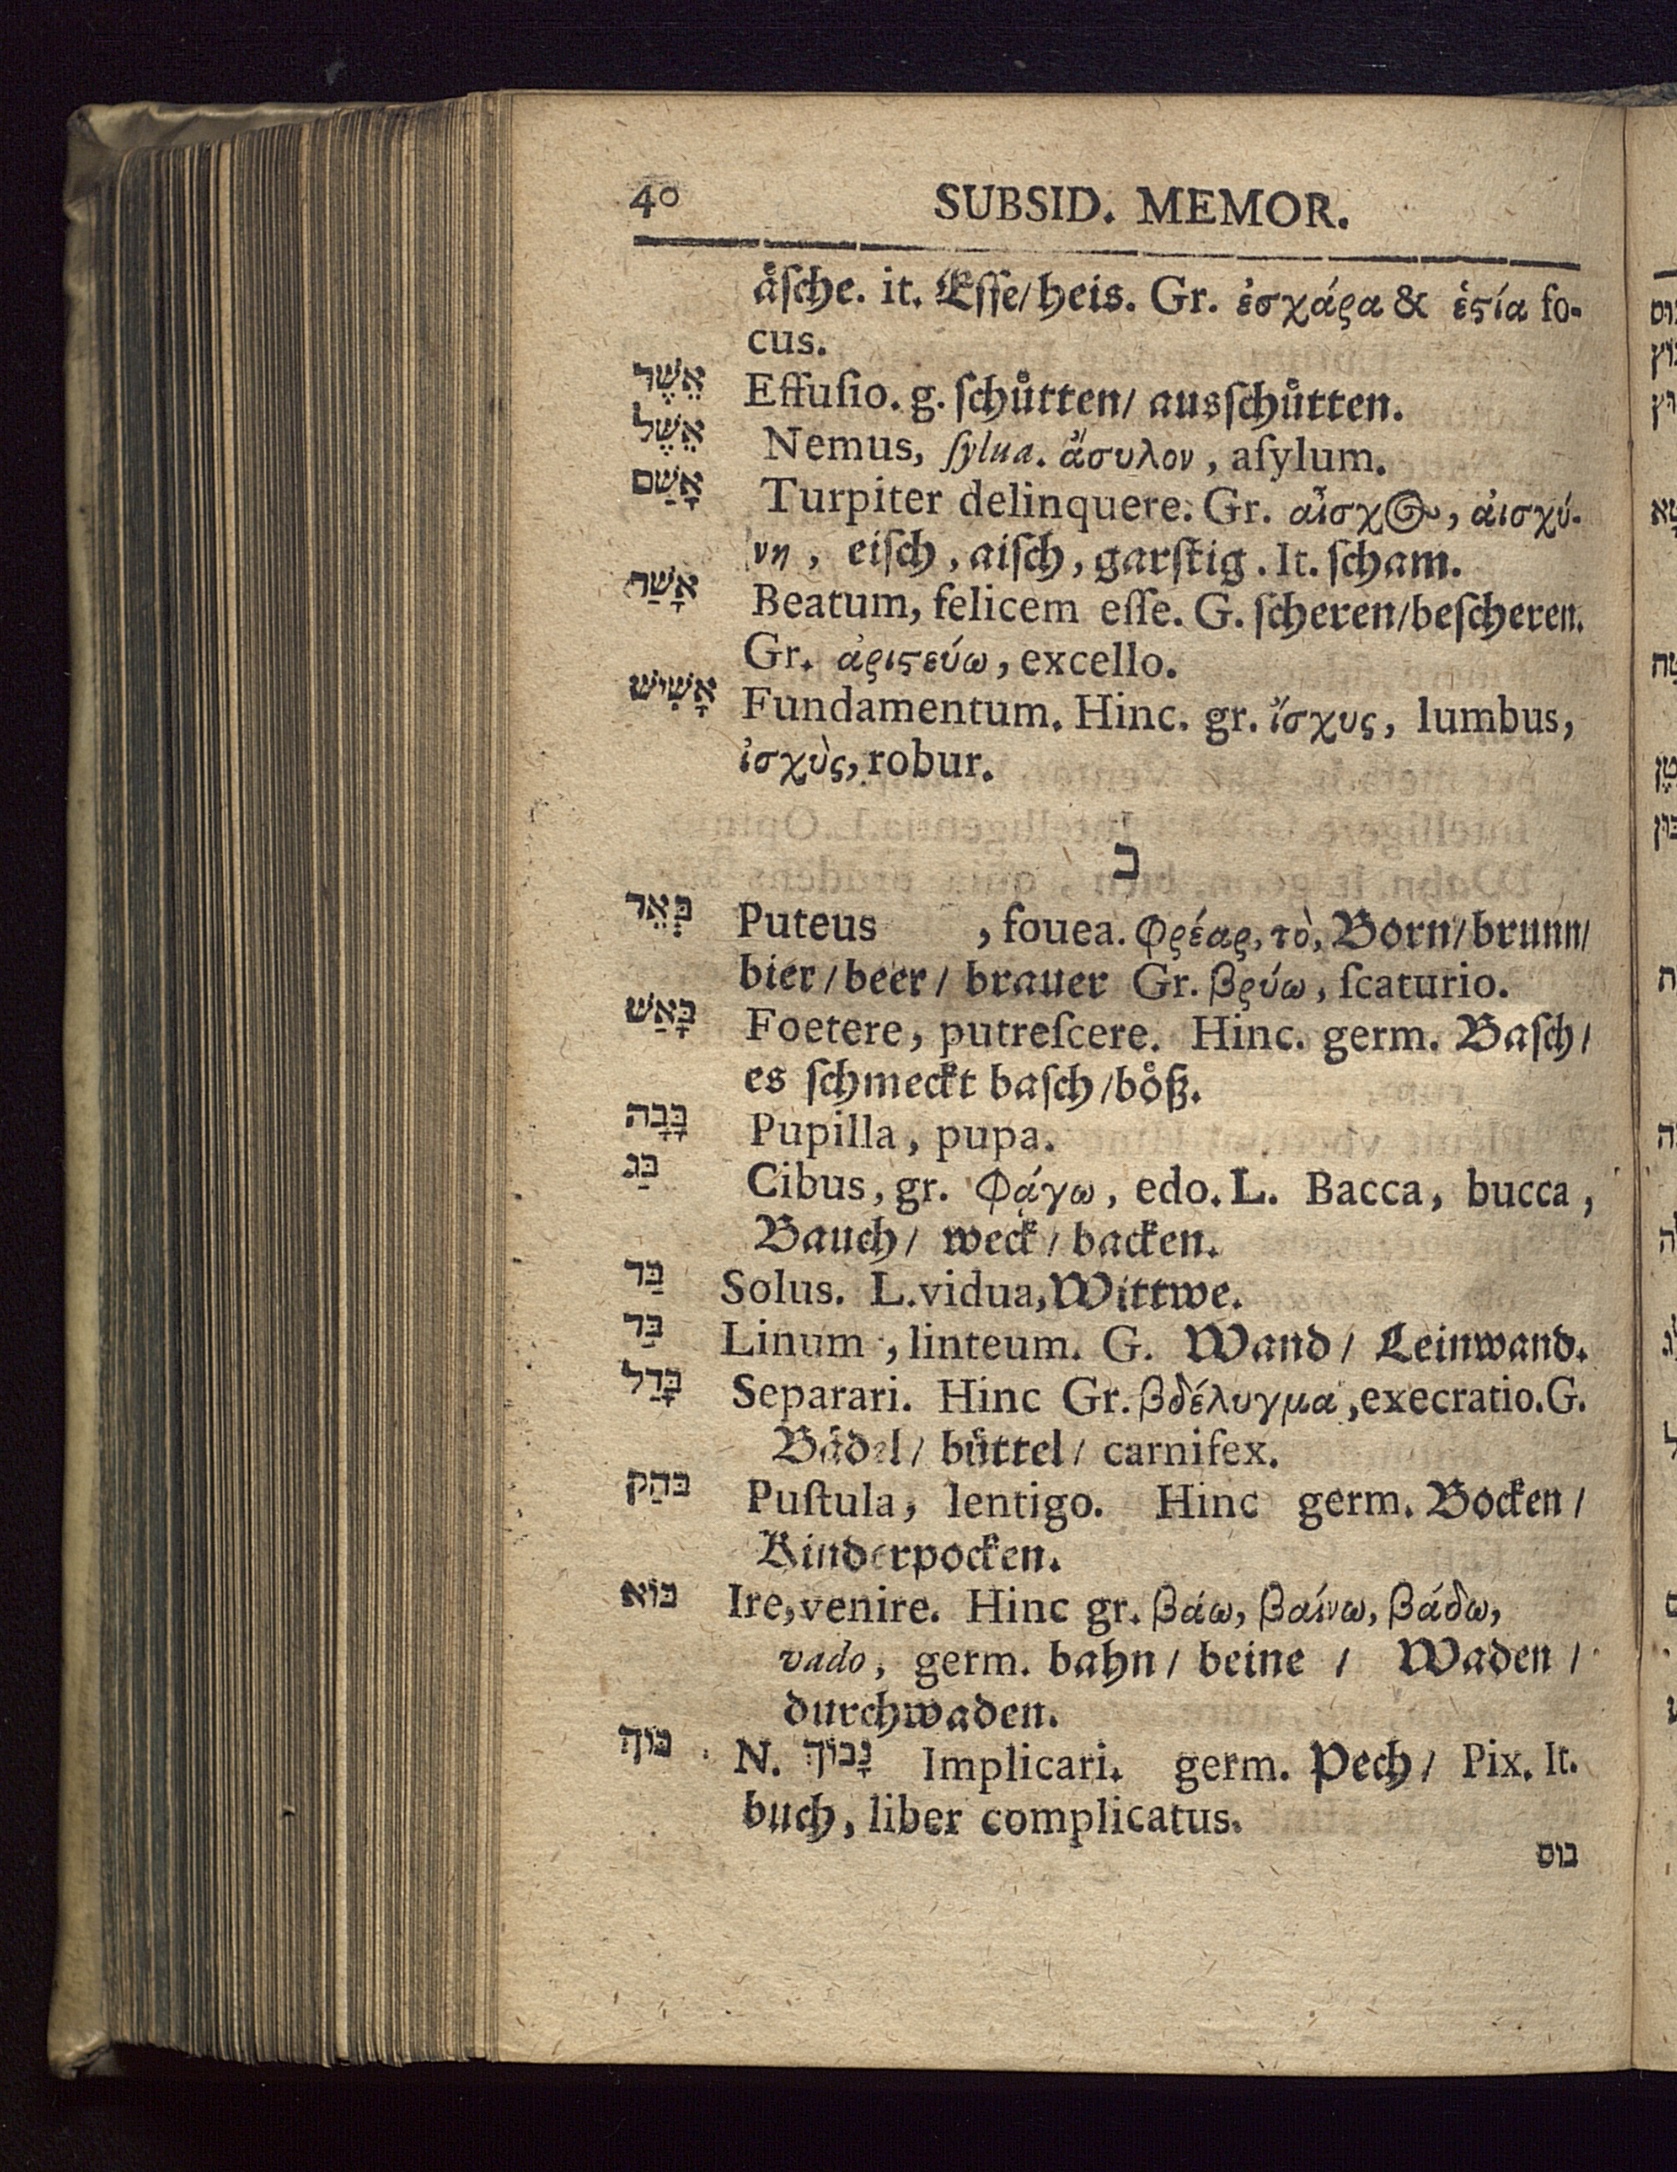 40 SUBSID. MEMOR.
åſche. it. Eſſe/heis. Gr. ἐσχάρα & ἑϛία fo-
cus.
אֵשֶׁר Effuſio. g. ſchůtten/ ausſchůtten.
אֵשֶׁל Nemus, ſylua. ἄσυλον, aſylum.
אָשַׁם Turpiter delinquere. Gr. αἶσχος, αἰσχύ-
νη, eiſch, aiſch, garſtig. It. ſcham.
אָשַׁר Beatum, felicem eſſe. G. ſcheren/beſcheren.
Gr. ἀριϛεύω, excello.
אָשִׁישׁ Fundamentum. Hinc. gr. ἴσχυς, lumbus,
ἰσχὺς, robur.
ב
בְּאֵר Puteus , fouea. Φρέαρ, τὸ, Born/brunn/
bier/beer/ brauer Gr. βρύω, ſcaturio.
בָּאַשׁ Foetere, putreſcere. Hinc. germ. Baſch/
es ſchmeckt baſch/bőß.
בָּבָה Pupilla, pupa.
בַּג Cibus, gr. Φάγω, edo. L. Bacca, bucca,
Bauch/ weck/ backen.
בַּד Solus. L. vidua, Wittwe.
בַּד Linum, linteum. G. Wand/ Leinwand.
בָּדַל Separari. Hinc Gr. βδέλυγμα, execratio. G.
Bådel/ bůttel/ carnifex.
בּהַק Puſtula, lentigo. Hinc germ. Bocken/
Kinderpocken.
בּוֹא Ire, venire. Hinc gr. βάω, βαίνω, βάδω,
vado, germ. bahn/ beine / Waden/
durchwaden.
בּוּךְ N. נָבוֹךְ Implicari. germ. Pech/ Pix. It.
buch, liber complicatus.
בוס